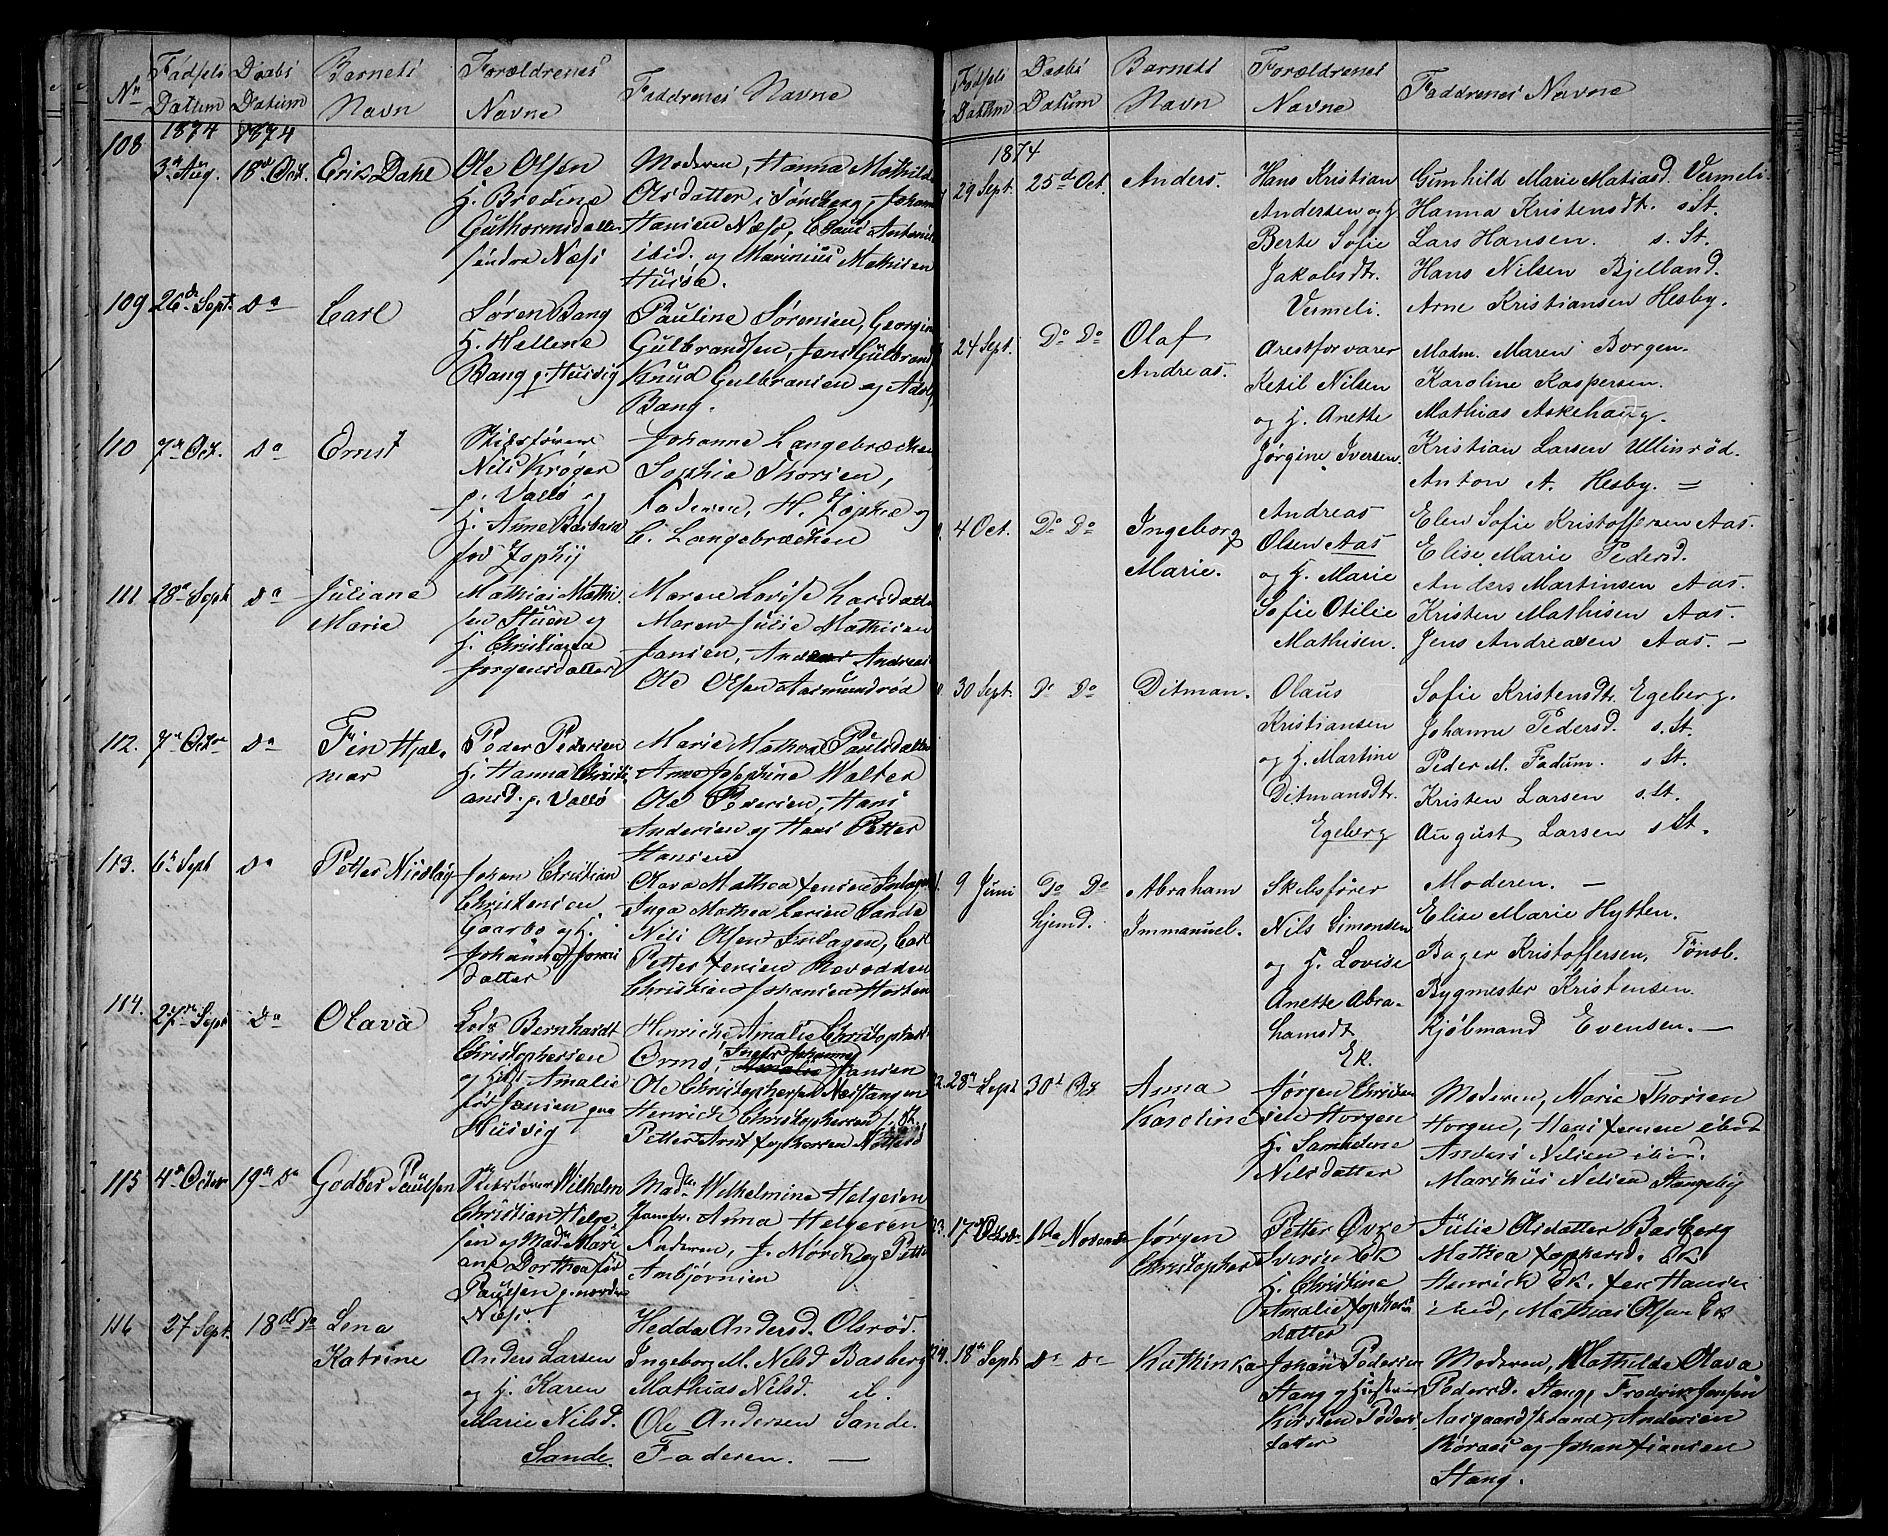 Nr Födsels Datum Daabs Datum Barnets Navn Forældrenes Navne Faddrenes Navne
1874 1874
108 3d Aug. 18d Oct. Erik Dahl
Ole Olsen
H. Bredine
Guthormsdatter
søndre Næss
Moderen, Hanna Mathilde
Olsdatter i Søndberg, Johan
Hansen Næss, Claus Antonis
ibid. og Marinius Mathisen
Husø.
109 26d Sept. Do Carl
Søren Bang
H. Hellene
Bang p. Husvig
Pauline Sørensen, Georgine
Gulbrandsen, Jens Gulbrands
Knud Gulbransen og Adolf
Bang.
110 7d Oct. Do Ernst
Skibsfører
Nils Krøger
p. Vallø og
H. Anne Barbara
fød Zophij
Johanne Langebræchen
Sophie Thorsen,
Faderen, H. Zophie og
C. Langebræchen
111 28d Sept Do Juliane
Marie
Mathias Mathi-
sen Stuen og
H. Christiana
Jørgensdatter
Maren Lovise Larsdatter
Maren Julie Mathisen
Jansen, Andreas
Ole Olsen Aasmundrød
112. 7de Octbr Do Fin Hjal-
mar
Peder Pedersen
H. Hanna Christi-
ansd. p. Vallø
Marie Mathea Paulsdatter
Anne Josephine Walter
Ole Pedersen, Hans
Andersen og Hans Petter
Hansen
113. 6te Sept Do Petter Nicolay
Johan Christian
Christensen
Gaarbo og H.
Johanne Jonas
datter
Olava Mathea Jensen Indlagen
Inga Mathea Larsen Sande
Nils Olsen Indlagen, Carl
Petter Jensen Rævodden
Christian Johansen Horten
114. 27de Sept Do Olava
Lods Bernhardt
Christophersen
og Hst. Amalie
fød Jensen paa
Husvig
Henriche Amalie Christophersd.
Ormø, Inger Johanne
Amalie Hansen
Ole Christophersen Næstangen
Henrich Christophersen s. St.
Petter Arnt Jophersen Nøtterø
115 4de Octobr 19de Do Godber Paulsen
Skibsfører Wilhelm
Christian Helge-
sen og Mad. Mari
ane Dorthea fød
Paulsen p. nordre
Næss.
Madme Wilhelmine Helgesen
Jomfr. Anna Helgesen
Faderen, J. Mørch og Petter
Ambjørnsen
116 27 Sept. 18de Do Lena
Katrine
Anders Larsen
og H. Karen
Marie Nilsd.
Sande.
Hedda Andersd. Olsrød.
Ingeborg M. Nilsd Basberg
Mathias Nilsd. ib.
Ole Andersen Sande.
Faderen. —
Födsels Datum Daabs Datum Barnets Navn Forældrenes Navne Faddrenes Navne
1874
29 Sept. 25d Oct. Anders.
Hans Kristian
Andersen og H.
Berte Sofie
Jakobsdtr.
Vermeli.
Gunhild Marie Matiasd. Vermeli.
Hanna Kristensdtr. s. St.
Lars Hansen. s. St.
Hans Nilsen Bjelland.
Arne Kristiansen Hesby.
24 Sept. Do Do Olaf
Andreas.
Arestforvarer
Ketil Nilsen
og H. Anette
Jørgine Iversen.
Madm. Maren Borgen.
Karoline Kaspersen.
Mathias Askehaug.
Kristian Larsen Ullinrød.
Anton A. Hesby. =
4 Oct. Do Do Ingeborg
Marie.
Andreas
Olsen Aas
og H. Marie
Sofie Otilie
Mathisen.
Elen Sofie Kristoffersen Aas.
Elise Marie Pedersd.
Anders Martinsen Aas.
Kristen Mathisen Aas.
Jens Andreasen Aas. —
30 Sept. Do Do Ditman.
Olaus
Kristiansen
og H. Martine
Ditmansdtr.
Egeberg
Sofie Kristensdtr Egeberg.
Johanne Pedersd. s. St.
Peder M. Fadum. s St.
Kristen Larsen s. St.
August Larsen s St.
9 Juni Do Do
hjemd.
Abraham
Immanuel.
Skibsfører
Nils Simonsen
og H. Lovise
Anette Abra-
hamsdt
Ek.
Moderen. —
Elise Marie Hytten.
Bager Kristoffersen, Tönsb.
Bygmester Kristensen.
Kjöbmand Evensen. —
28d Sept 30d Do Anna
Karoline
Jørgen Christen
sen Horgen
H. Samueline
Nilsdatter
Moderen, Marie Thorsen
Horgen, Hans Jensen ibid
Anders Nilsen ibid.
Marthus Nilsen Stangeby
17d Octobr 1ste Novembr Jørgen
Christopher
Petter Øvre
Iversen Ek
H. Christine
Amalie Jophers
datter
Julie Olsdatter Basberg
Mathea Jophersd. Ek
Henrich Ek. Jen Hansen
ibid, Mathias Olsen Ek
18d Sept Do Do Kathinka
Johan Pedersen
Stang og Hustru
Kirsten Peders
datter
Moderen, Mathilde Olava
Pedersd. Stang, Fredrik Jensen
Aasgaardstrand, Andersen
Røraas og Johan Jansen
Stang.